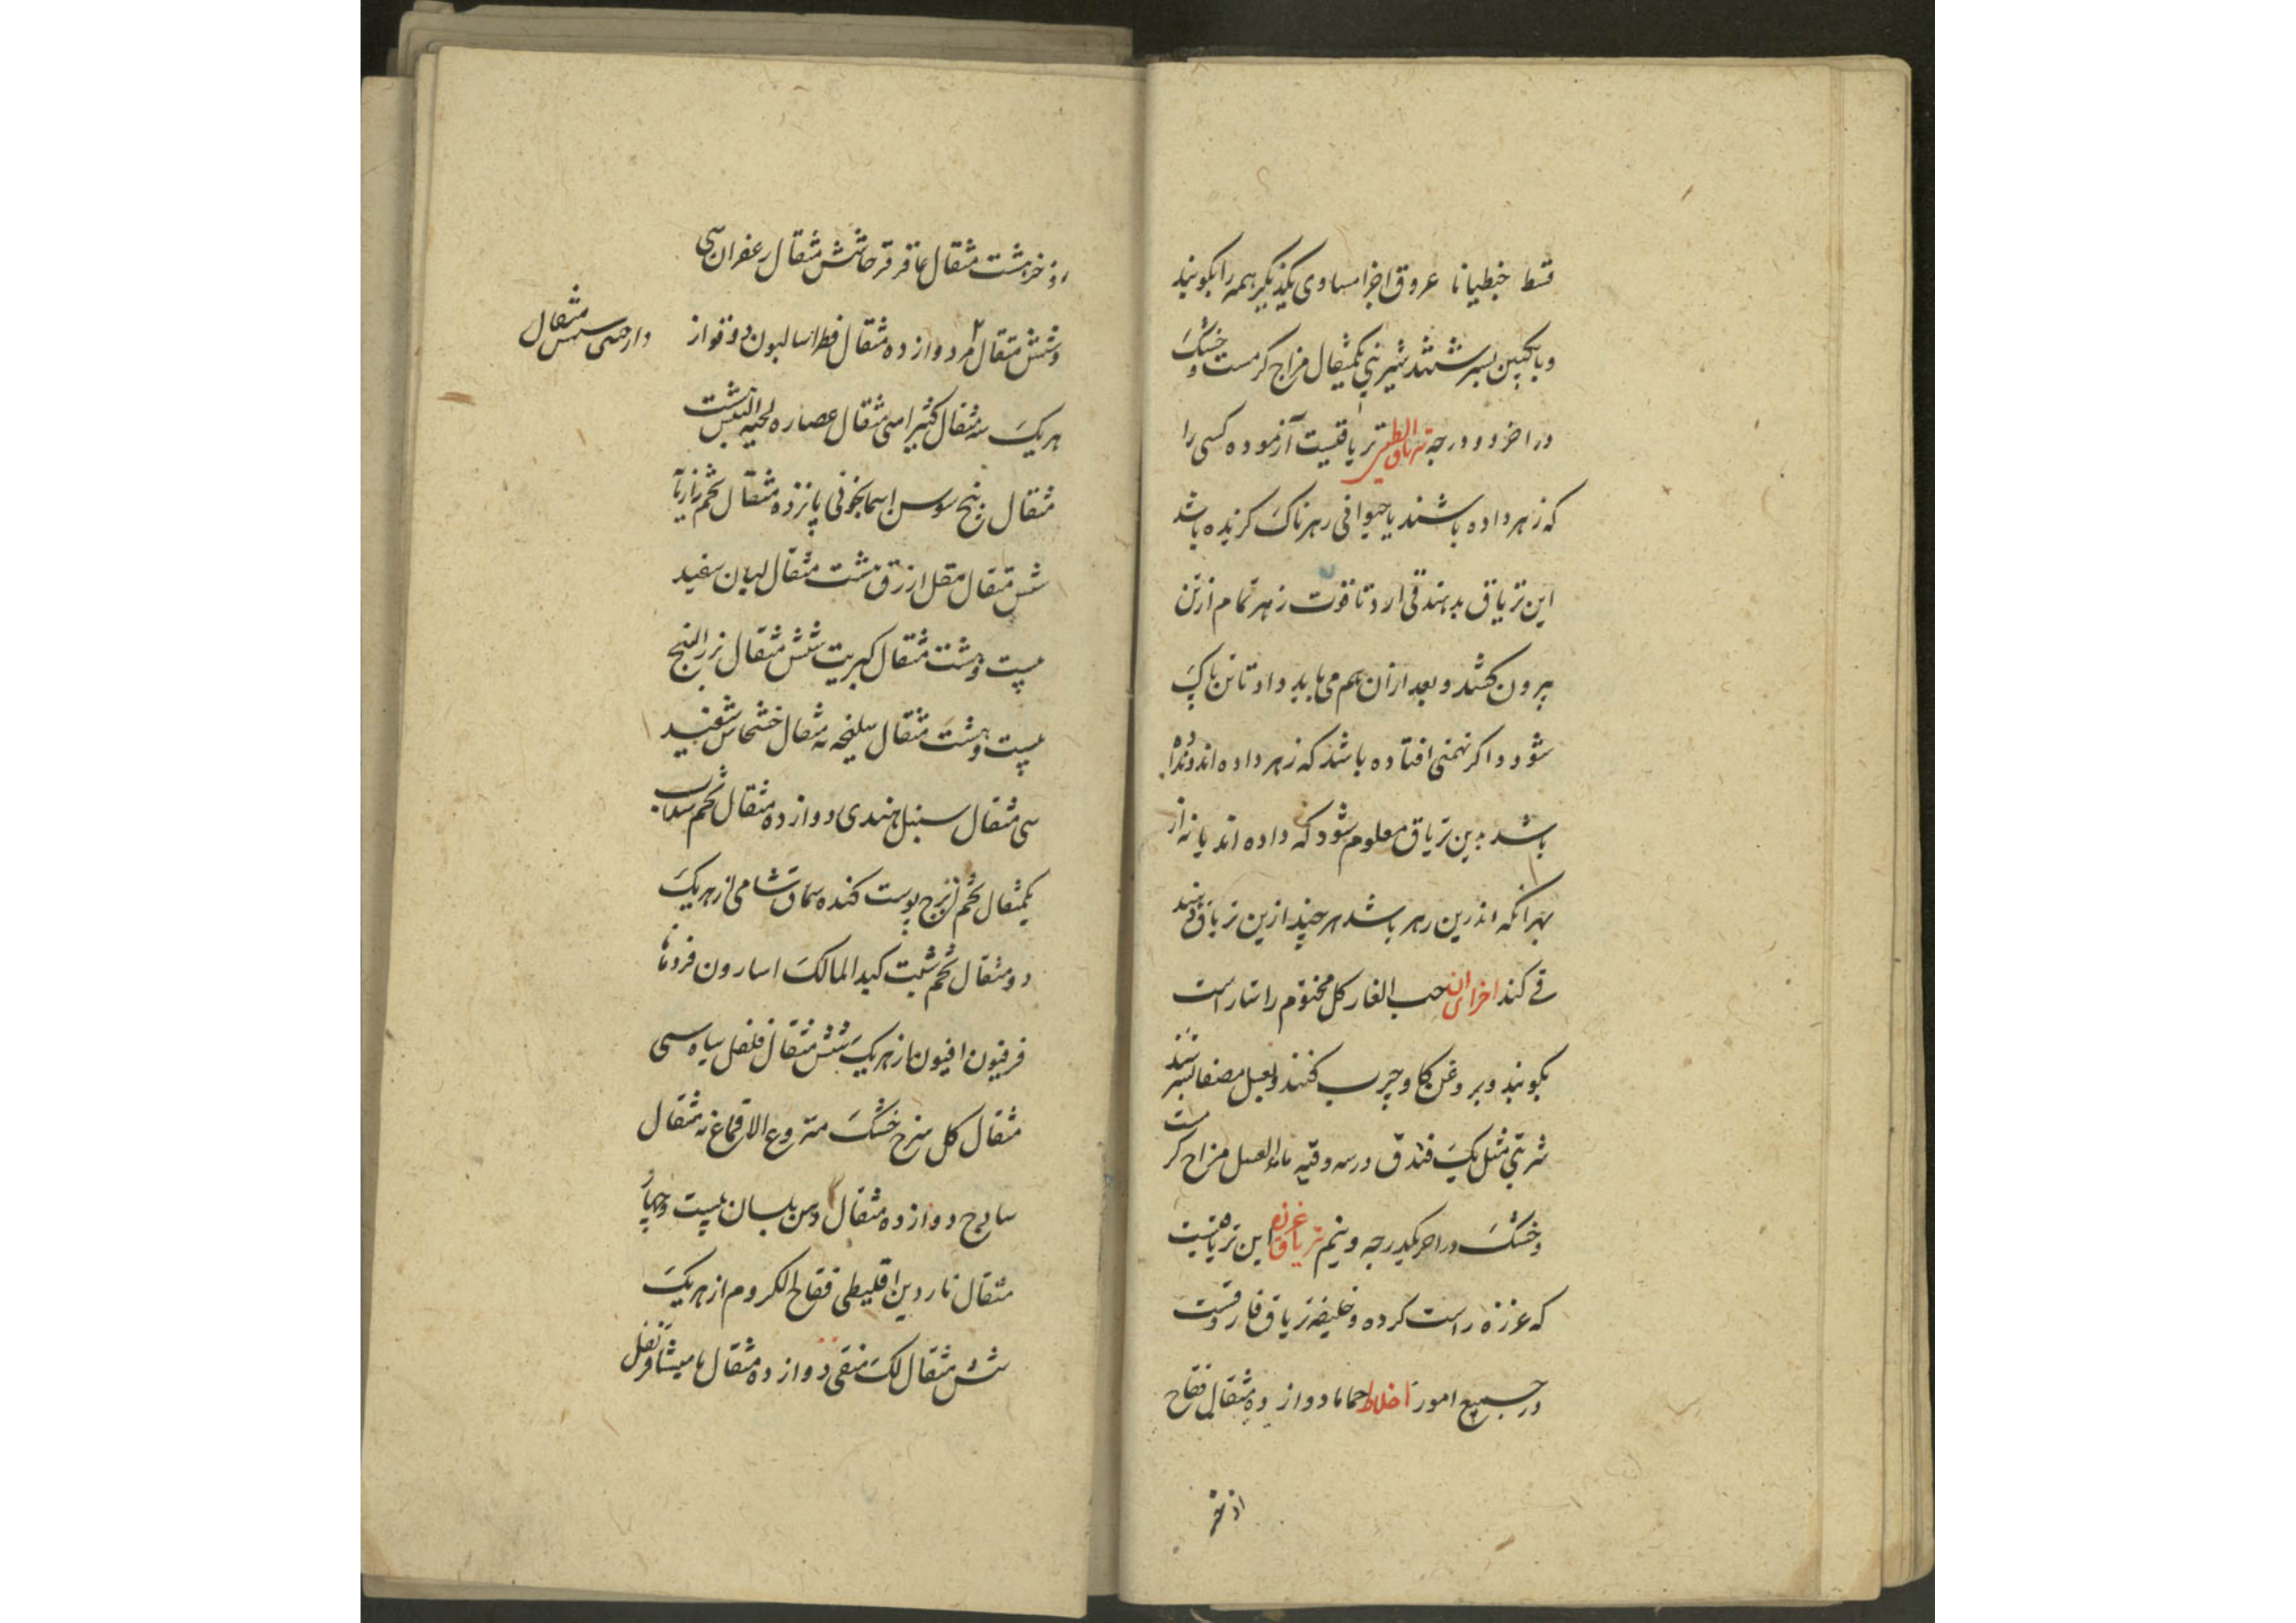 قسط جنطیانا عروق اجزا مساوی یکدیگر همه را بکوبند
و بانکبین بسرشند شیرینی یکمثقال مزاج گرمست و خشک
در اخر دو درجه تریاق الطین تریاقیست آزموده کسی را
که زهر داده باشند یا حیوانی زهرناک گزنده باشد
این تریاق بدهند قی ارد تا قوت زهر تمام از تن
بیرون کشد و بعد ازان هم می باید داد تا تن پاک
شود و اگر تهمتی افتاده باشد که زهر داده اند و نداده
باشد بدین تریاق معلوم شود که داده اند یا نه از
بهر انکه اندرین زهر باشد هر چند ازین تریاق دهند
قی کند اجزای ان حب الغار کل مختوم راستاراست
بکوبند و بروغن کاو چرب کنند و بعسل مصفا بسرشند
شربتی مثل یک فندق در سه وقیه ماء العسل مزاج گرمست
و خشک در اخر یکدرجه و نیم تریاق عزره این تریاقیست
که عزره راست کرده و خلیفه تریاق فاروقست
در جمیع امور اخلاط حماما دوازده مثقال فقاح
اذخر
اذخر هشت مثقال عاقرقرحا شش مثقال زعفران سی
و شش مثقال مر دوازده مثقال فطراسالیون دوقو از
دارچینی شش مثقال
هریک سه مثقال کثیرا سی مثقال عصاره لحیة التیس هشت
مثقال بیخ سوسن اسمانجونی پانزده مثقال تخم رازیانه
شش مثقال مقل ازرق هشت مثقال لبان سفید
بیست و هشت مثقال کبریت شش مثقال بزر البنج
بیست و هشت مثقال سلیخه نه مثقال خشخاش سفید
سی مثقال سنبل هندی دوازده مثقال تخم سداب
یکمثقال تخم ترنج پوست کنده سماق شامی از هریک
دو مثقال تخم شبت کبد المالک اسارون فردمانا
فرفیون افیون از هریک شش مثقال فلفل سیاه سی
مثقال کل سرخ خشک منزوع الاقماع نه مثقال
سادج دوازده مثقال دهن بلسان بیست و چهار
مثقال ناردین اقلیطی فقاح الکروم از هریک
شش مثقال لک منقی دوازده مثقال مامیثا قرنفل